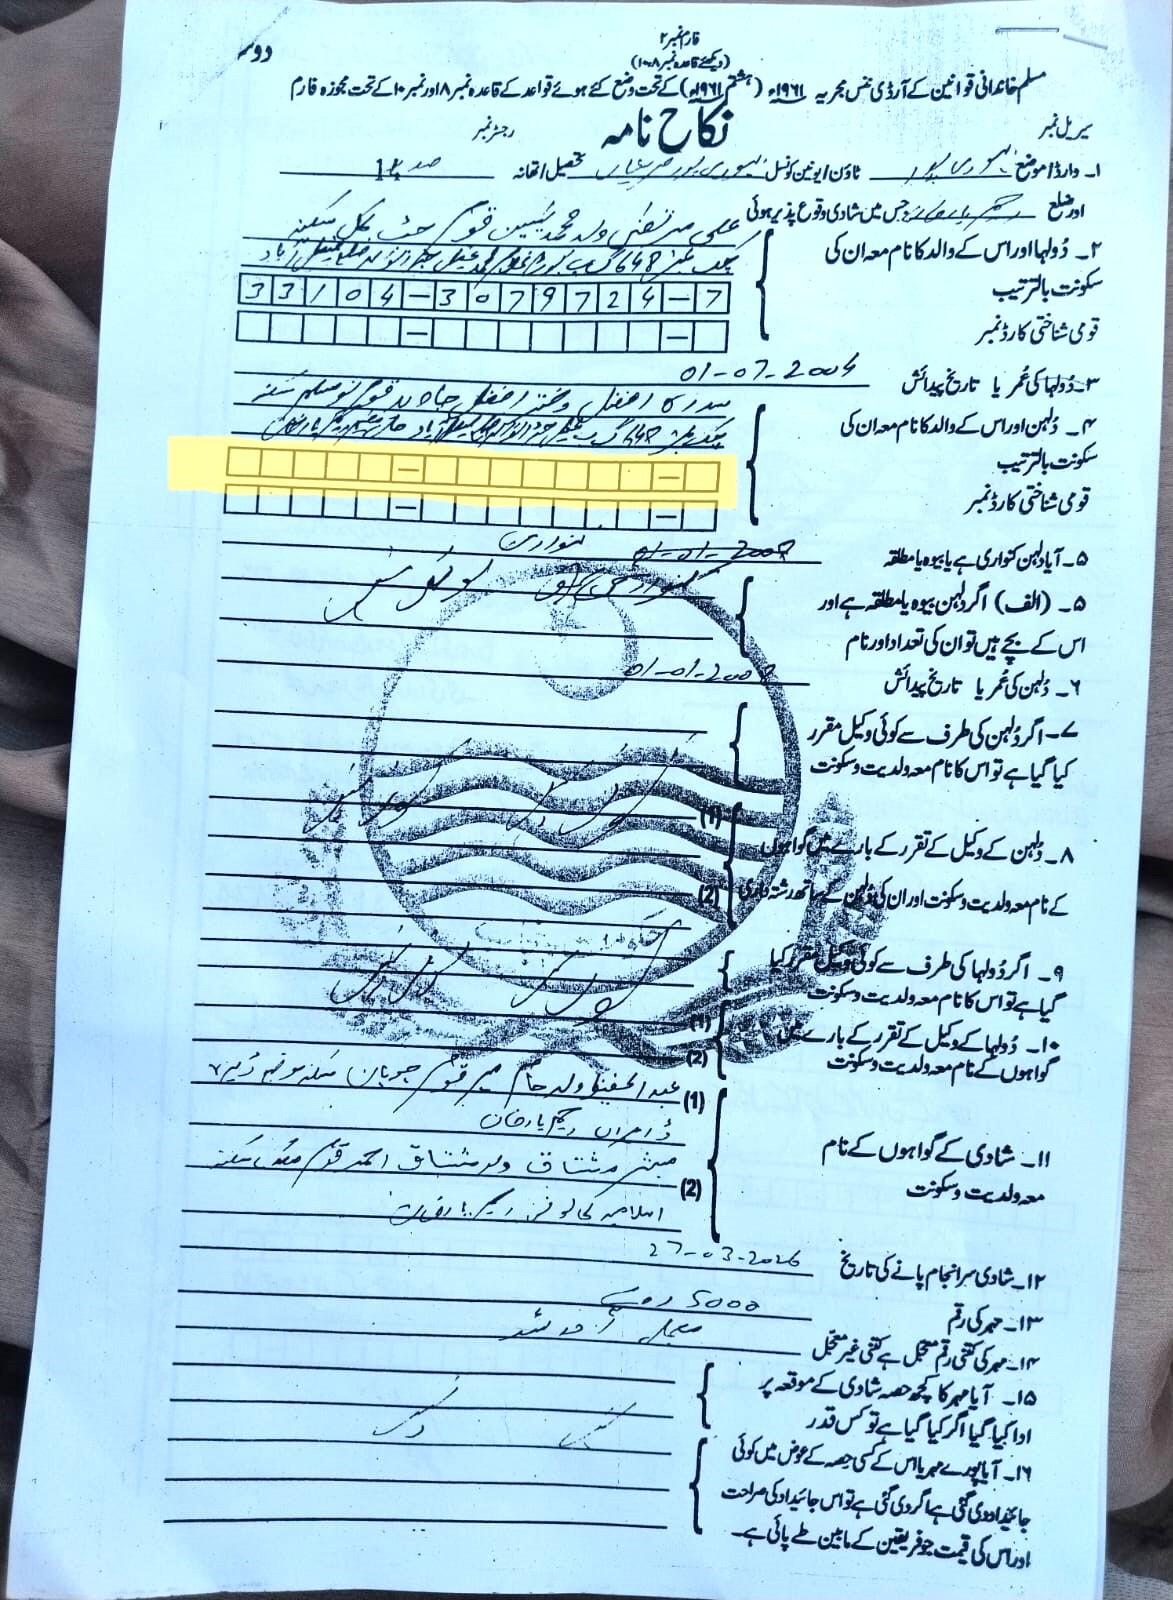 دوسہ
فارم نمبر ۲
(دیکھئے قاعدہ نمبر ۸-۱۰)
مسلم خاندانی قوانین کے آرڈی ننس مجریہ ۱۹۶۱ء (ہشتم ۱۹۶۱ء) کے تحت وضع کئے ہوئے قواعد کے قاعدہ نمبر ۸ اور نمبر ۱۰ کے تحت مجوزہ فارم
سیریل نمبر نکاح نامہ رجسٹر نمبر
۱۔ وارڈ/موضع ٹاؤن/یونین کونسل تحصیل/تھانہ صدر
اور ضلع رحیم یار خان جس میں شادی وقوع پذیر ہوئی
۲۔ دُولہا اور اس کے والد کا نام معہ ان کی علی مرتضیٰ ولد محمد یٰسین قوم سکنہ
سکونت بالترتیب چک نمبر 648 گ ب
قومی شناختی کارڈ نمبر 33104-3079724-7
۳۔ دُولہا کی عُمر یا تاریخ پیدائش 01-07-2004
۴۔ دُلہن اور اس کے والد کا نام معہ ان کی سدرہ افضل دختر افضل جاوید قوم سکنہ
سکونت بالترتیب چک نمبر 648 گ ب
قومی شناختی کارڈ نمبر
۵۔ آیا دلہن کنواری ہے یا بیوہ یا مطلقہ 01-01-2008 کنواری
۵۔ (الف) اگر دُلہن بیوہ یا مطلقہ ہے اور
اس کے بچے ہیں تو ان کی تعداد اور نام
۶۔ دُلہن کی عُمر یا تاریخ پیدائش 01-01-2008
۷۔ اگر دُلہن کی طرف سے کوئی وکیل مقرر
کیا گیا ہے تو اس کا نام معہ ولدیت و سکونت
۸۔ دُلہن کے وکیل کے تقرر کے بارے میں گواہوں (1)
کے نام معہ ولدیت و سکونت اور ان کی دُلہن کے ساتھ رشتہ داری (2)
۹۔ اگر دُولہا کی طرف سے کوئی وکیل مقرر کیا
گیا ہے تو اس کا نام معہ ولدیت و سکونت
۱۰۔ دُولہا کے وکیل کے تقرر کے بارے میں (1)
گواہوں کے نام معہ ولدیت و سکونت (2)
(1) عبد الحفیظ ولد قوم سکنہ
رحیم یار خان
۱۱۔ شادی کے گواہوں کے نام
معہ ولدیت و سکونت (2) مبشر مشتاق ولد مشتاق احمد قوم سکنہ
اسلامیہ کالونی رحیم یار خان
۱۲۔ شادی سرانجام پانے کی تاریخ 27-03-2026
۱۳۔ مہر کی رقم 5000 روپے
۱۴۔ مہر کی کتنی رقم معجل ہے کتنی غیر معجل معجل
۱۵۔ آیا مہر کا کچھ حصہ شادی کے موقعہ پر
ادا کیا گیا اگر کیا گیا ہے تو کس قدر
۱۶۔ آیا پورے مہر یا اس کے کسی حصہ کے عوض میں کوئی
جائیداد دی گئی ہے اگر دی گئی ہے تو اس جائیداد کی صراحت
اور اس کی قیمت جو فریقین کے مابین طے پائی ہے۔